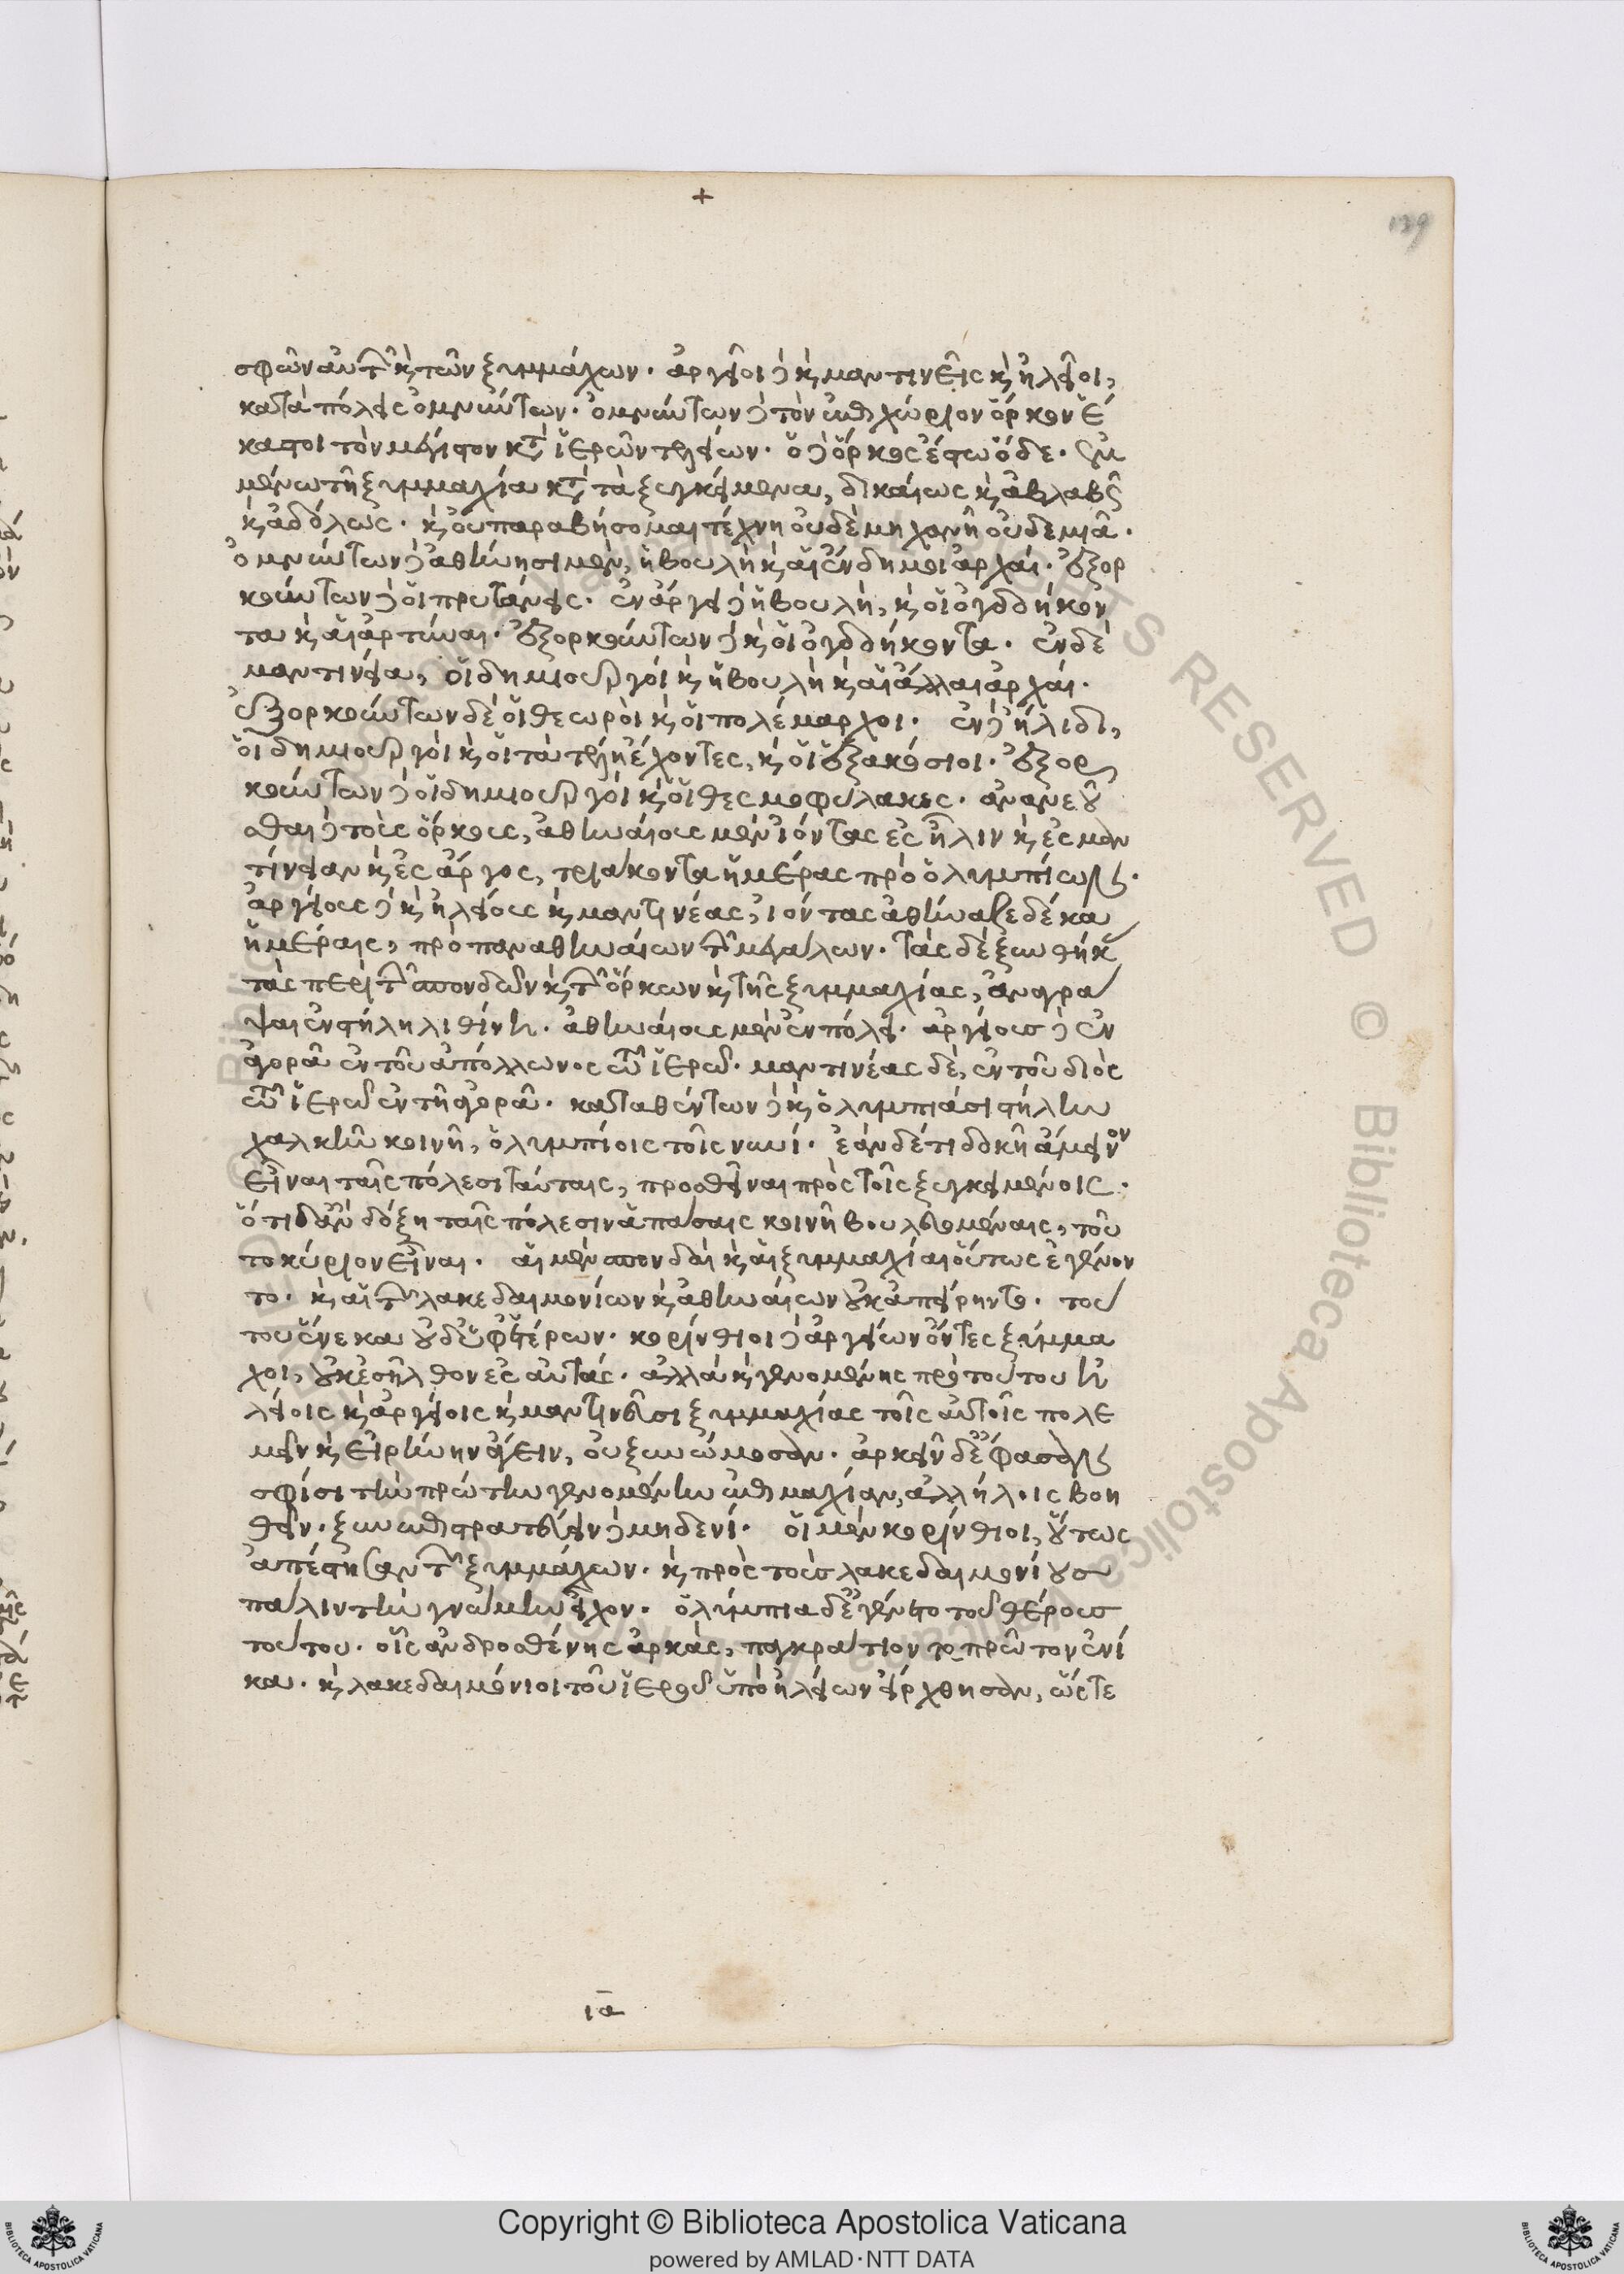 +
139
σφῶν αὐτῶν καὶ τῶν ξυμμάχων. ἀργεῖοι δὲ καὶ μαντινεῖς καὶ ἠλεῖοι,
κατὰ πόλεις ὀμνύντων. ὀμνύντων δὲ τὸν ἐπιχώριον ὅρκον ἕ
καστοι τὸν μέγιστον κατὰ ἱερῶν τελείων. ὁ δὲ ὅρκος ἔστω ὅδε. ἐμ
μενῶ τῇ ξυμμαχία κατὰ τὰ ξυγκείμενα, δικαίως καὶ ἀβλαβῶς
καὶ ἀδόλως. καὶ οὐ παραβήσομαι τέχνη οὐδὲ μηχανῇ οὐδεμιᾶ.
ὀμνύντων δὲ ἀθήνησι μὲν, ἡ βουλὴ καὶ αἱ ἔνδημοι ἀρχαί. ἐξορ
κούντων δὲ οἱ πρυτάνεις. ἐν ἄργει δὲ ἡ βουλὴ, καὶ οἱ ὀγδοήκον
τα καὶ αἱ ἀρτύναι. ἐξορκούντων δὲ καὶ οἱ ὀγδοήκοντα. ἐν δὲ
μαντινεία, οἱ δημιουργοὶ καὶ ἡ βουλὴ καὶ αἱ ἄλλαι ἀρχαί.
ἐξορκούντων δὲ οἱ θεωροὶ καὶ οἱ πολέμαρχοι. ἐν δὲ ἤλιδι,
οἱ δημιουργοὶ καὶ οἱ τὰ τέλη ἔχοντες, καὶ οἱ ἑξακόσιοι. ἐξορ
κούντων δὲ οἱ δημιουργοὶ καὶ οἱ θεσμοφύλακες. ἀνανεοῦ
σθαι δὲ τοὺς ὅρκους, ἀθηναίους μὲν ἰόντας ἐς ἦλιν καὶ ἐς μαν
τίνειαν καὶ ἐς ἄργος, τριάκοντα ἡμέρας πρὸ ὀλυμπίων.
ἀργείους δὲ καὶ ἠλείους καὶ μαντινέας, ἰόντας ἀθήναζε δέκα
ἡμέραις, πρὸ παναθηναίων τῶν μεγάλων. τὰς δὲ ξυνθήκας
τὰς περὶ τῶν σπονδῶν καὶ τῶν ὅρκων καὶ τῆς ξυμμαχίας, ἀναγρά
ψαι ἐν στήλη λιθίνη. ἀθηναίους μὲν ἐν πόλει. ἀργείους δὲ ἐν
ἀγορᾶ ἐν τοῦ ἀπόλλωνος τῶ ἱερῶ. μαντινέας δὲ, ἐν τοῦ διὸς
τῶ ἱερῶ ἐν τῇ ἀγορᾶ. καταθέντων δὲ καὶ ὀλυμπιάσι στήλην
χαλκῆν κοινῇ, ὀλυμπίοις τοῖς νυνί. ἐὰν δέ τι δοκῇ ἄμεινον
εἶναι ταῖς πόλεσι ταύταις, προσθεῖναι πρὸς τοῖς ξυγκειμένοις.
ὅτι δ' ἂν δόξη ταῖς πόλεσιν ἁπάσαις κοινῇ βουλευομέναις, τοῦ
το κύριον εἶναι. αἱ μὲν σπονδαὶ καὶ αἱ ξυμμαχίαι οὕτως ἐγένον
το. καὶ αἱ τῶν λακεδαιμονίων καὶ ἀθηναίων οὐκ ἀπείρηντο. τού
του ἕνεκα οὐδ' ὑφ' ἑτέρων. κορίνθιοι δὲ ἀργείων ὄντες ξύμμα
χοι, οὐκ ἐσῆλθον ἐς αὐτάς. ἀλλὰ καὶ γενομένης πρὸ τούτου ἠ
λείοις καὶ ἀργείοις καὶ μαντινεῦσι ξυμμαχίας τοῖς αὐτοῖς πολε
μεῖν καὶ εἰρήνην ἄγειν, οὐ ξυνώμοσαν. ἀρκεῖν δ' ἔφασαν
σφίσι τὴν πρώτην γενομένην ἐπιμαχίαν, ἀλλήλοις βοη
θεῖν. ξυνεπιστρατεύειν δὲ μηδενί. οἱ μὲν κορίνθιοι, οὕτως
ἀπέστησαν τῶν ξυμμάχων. καὶ πρὸς τοὺς λακεδαιμονίους
πάλιν τὴν γνώμην εἶχον. ὀλύμπια δ' ἐγένετο τοῦ θέρους
τούτου. οἷς ἀνδροσθένης ἀρκὰς, παγκράτιον τὸ πρῶτον ἐνί
κα. καὶ λακεδαιμόνιοι τοῦ ἱεροῦ ὑπὸ ἠλείων εἴρχθησαν, ὥστε
ια
Copyright © Biblioteca Apostolica Vaticana
powered by AMLAD·NTT DATA